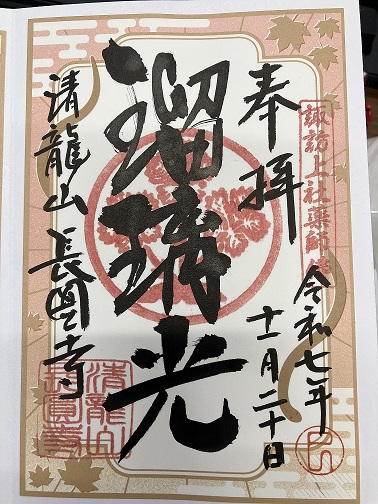 奉拝
諏訪上社薬師
令和七年
十一月二十日
瑠璃光
清龍山長圓寺
清龍山
長圓寺